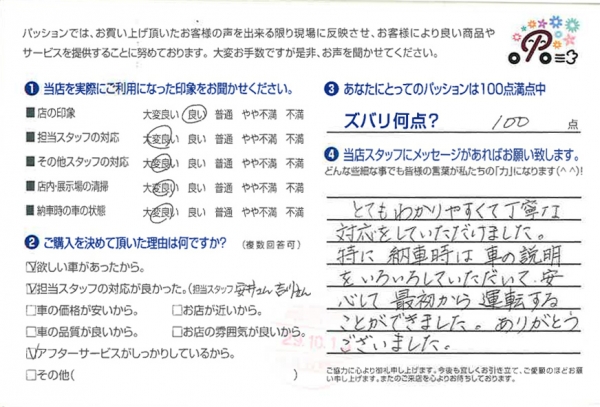 パッションでは、お買い上げ頂いたお客様の声を出来る限り現場に反映させ、お客様により良い商品や
サービスを提供することに努めております。 大変お手数ですが是非、お声を聞かせてください。
❶ 当店を実際にご利用になった印象をお聞かせください。
■店の印象 大変良い 良い 普通 やや不満 不満
■担当スタッフの対応 大変良い 良い 普通 やや不満 不満
■その他スタッフの対応 大変良い 良い 普通 やや不満 不満
■店内・展示場の清掃 大変良い 良い 普通 やや不満 不満
■納車時の車の状態 大変良い 良い 普通 やや不満 不満
❷ ご購入を決めて頂いた理由は何ですか? (複数回答可)
☑欲しい車があったから。
☑担当スタッフの対応が良かった。(担当スタッフ 安井さん 吉川さん
□車の価格が安いから。 □お店が近いから。
□車の品質が良いから。 □お店の雰囲気が良いから。
☑アフターサービスがしっかりしているから。
□その他( )
❸ あなたにとってのパッションは100点満点中
ズバリ何点? 100 点
❹ 当店スタッフにメッセージがあればお願い致します。
どんな些細な事でも皆様の言葉が私たちの「力」になります(^^)!
とてもわかりやすくて丁寧な
対応をしていただけました。
特に納車時は車の説明
をいろいろしていただいて、安
心して最初から運転する
ことができました。ありがとう
ございました。
ご協力に心より御礼申し上げます。今後も宜しくお引き立て、ご愛顧のほどお願
い申し上げます。またのご来店を心よりお待ちしております。
29.10.1